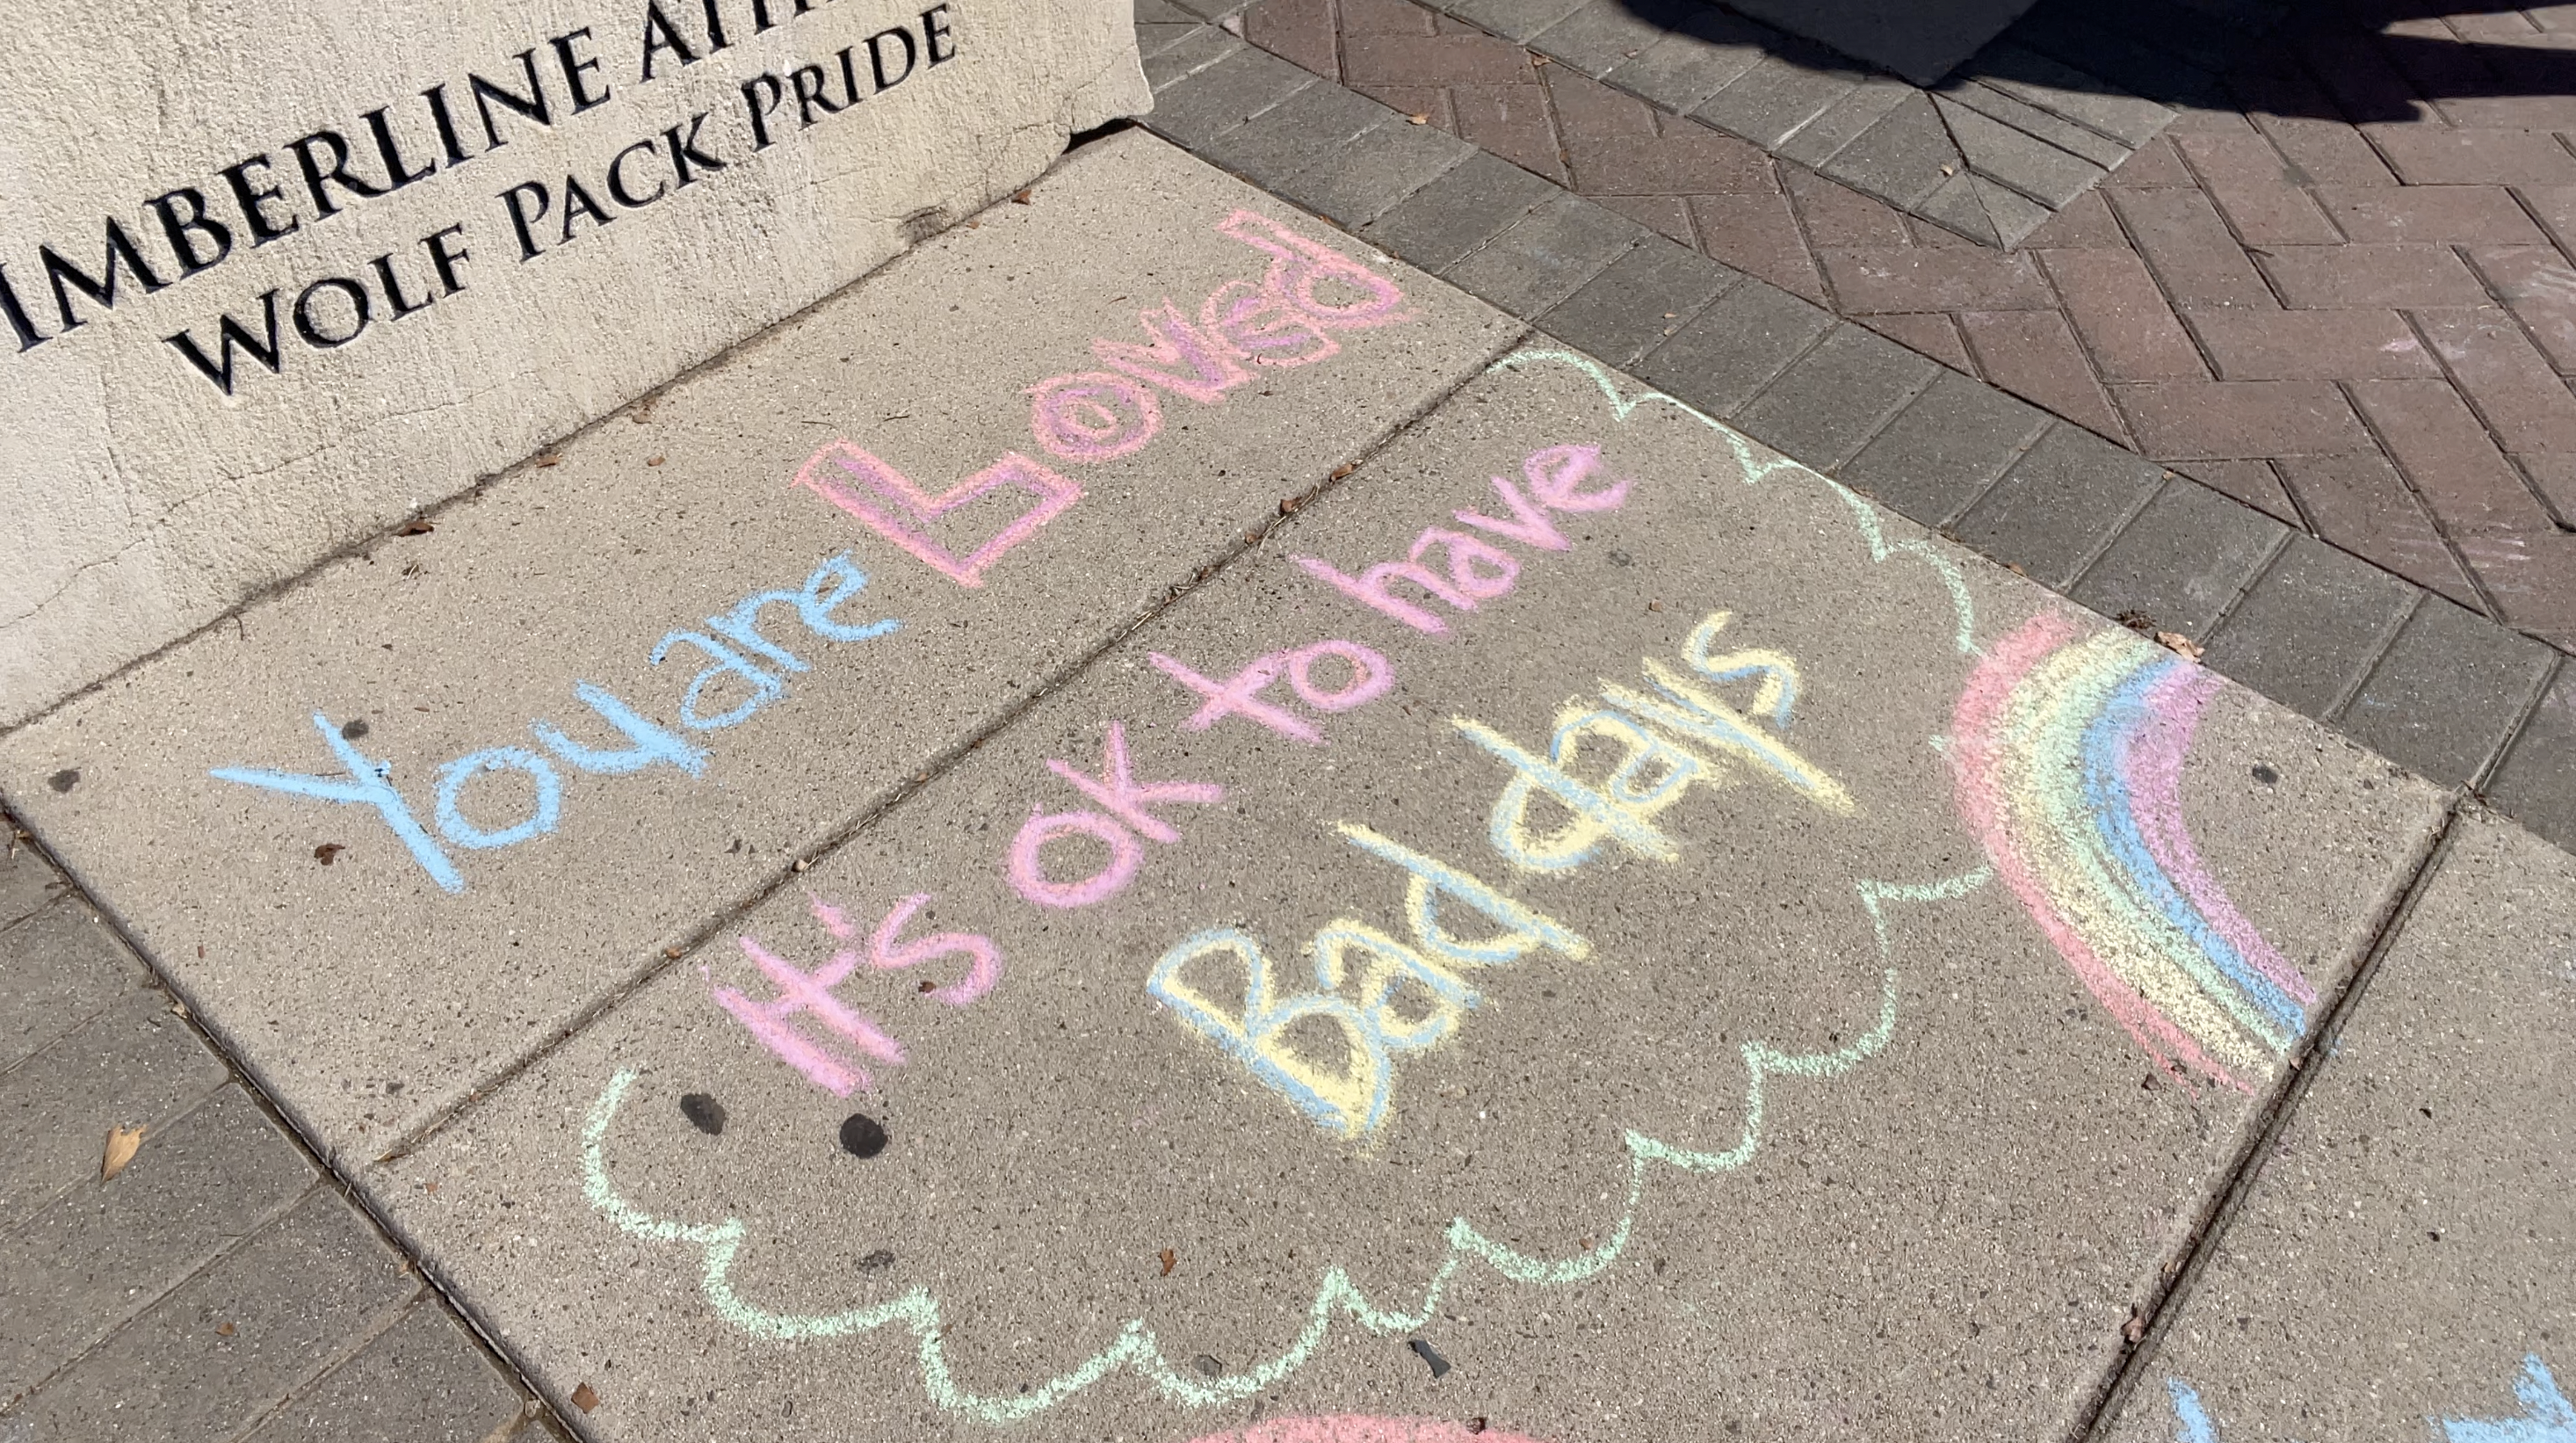 IMBERLINE
WOLF PACK PRIDE
You are Loved
It's ok to have
Bad days